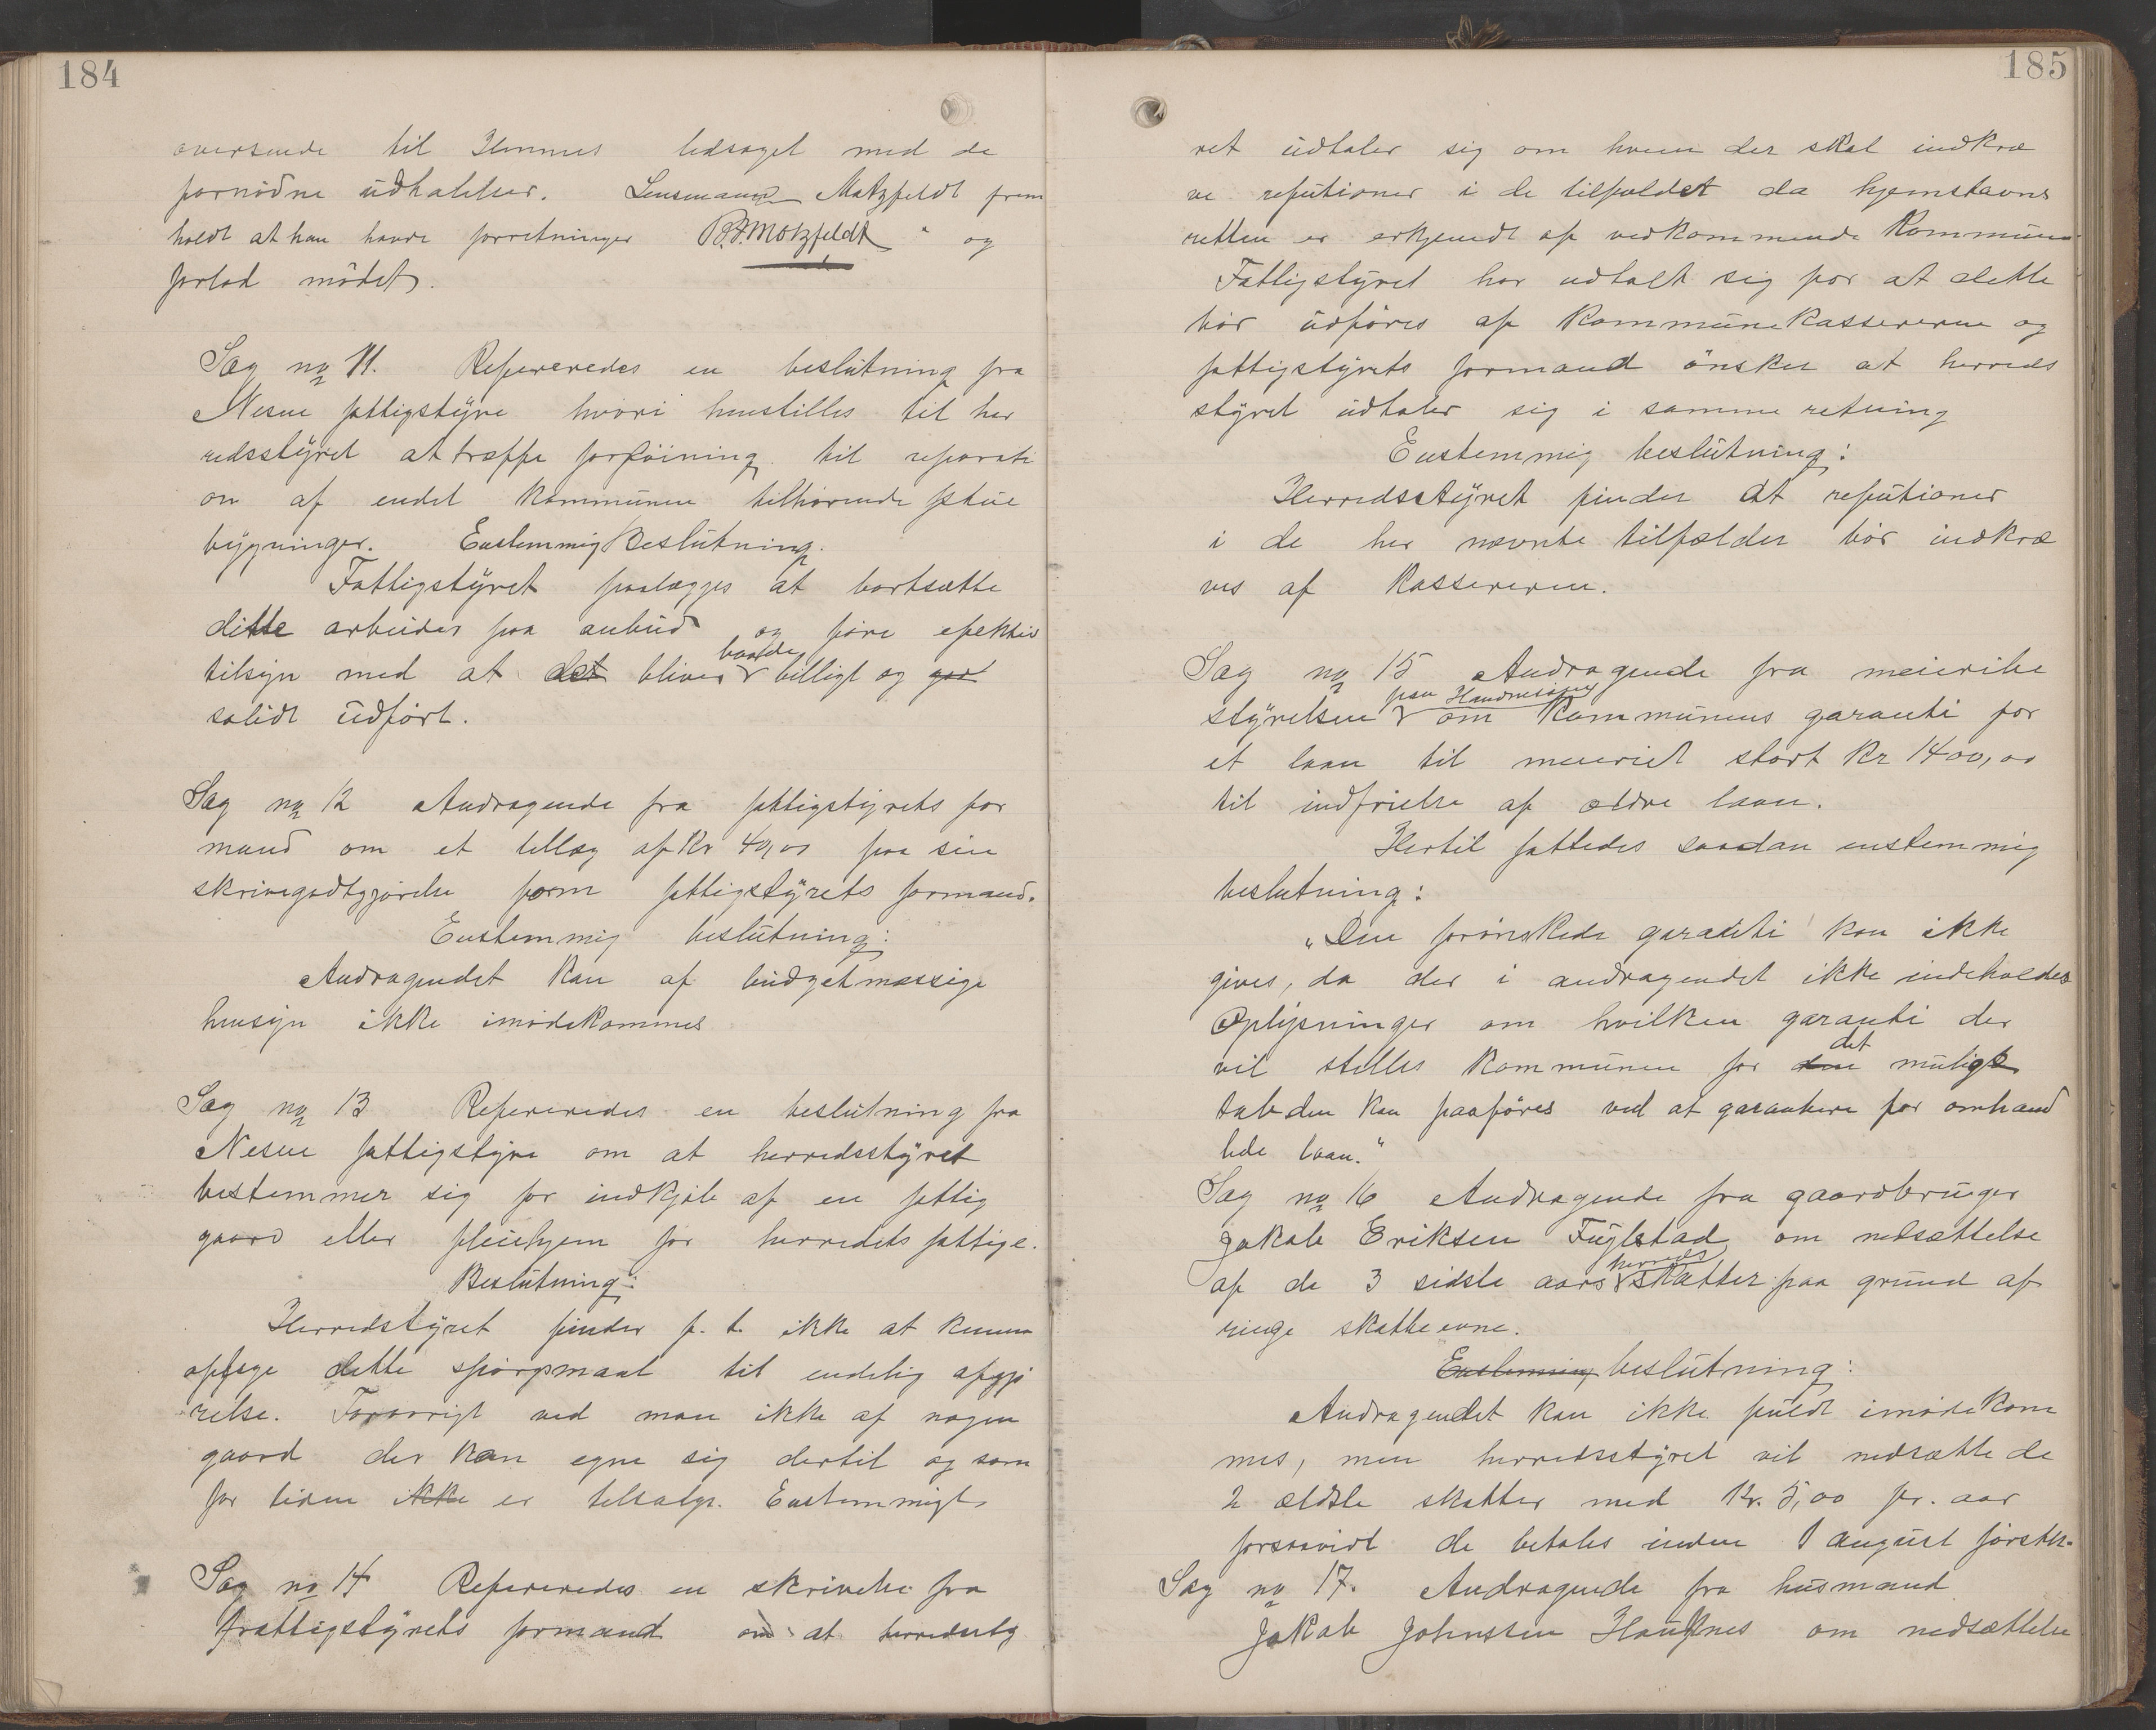 184
oversende til Hemnes ledsaget med de
fornødne udtalelser. Lensmand Motzfeldt frem
holdt at han havde forretninger B.F. Motzfeldt og
forlod mødet.
Sag no 11. Refereredes en beslutning fra
Nesne fattigstyre hvori henstilles til her
redsstyret at træffe forføining til reparati
on af endel kommunen tilhørende
bygninger. Enstemmig Beslutning.
Fattigstyret paalægges at bortsætte
dette arbeider paa anbud og føre efektiv
tilsyn med at det bliver baade billigt og god
solidt udført.
Sag no 12 Andragende fra fattigstyrets for
mand om et tillæg af Kr 40,00 paa sin
skrivegodtgjørelse som fattigstyrets formand.
Enstemmig beslutning:
Andragendet kan af budgetmæssige
hensyn ikke imødekommes
Sag no 13 Refereredes en beslutning fra
Nesne fattigstyre om at herredsstyret
bestemmer sig for indkjøb af en fattig
gaard eller pleiehjem for herredets fattige.
Beslutning:
Herredstyret finder p. t. ikke at kunne
optage dette spørgsmaal til endelig afgjø
relse. Forøvrigt ved man ikke af nogen
gaard der kan egne sig dertil og som
for tiden ikke er tilsalgs. Enstemmigt
Sag no 14 Refereredes en skrivelse fra
fattigstyrets formand om at herredsty
185
ret udtaler sig om hvem der skal indkræ
ve refutioner i de tilfældet da hjemstavns
retten er erkjendt af vedkommende Kommune.
Fattigstyret har udtalt sig for at dette
bør udføres af Kommunekassereren og
fattigstyrets formand ønsker at herreds
styret udtaler sig i samme retning
Enstemmig beslutning:
Herredsstyret finder at refutioner
i de her nævnte tilfælder bør indkræ
ves af Kassereren.
Sag no 15 Andragende fra meieribe
styrelsen paa Handnesøen om Kommunens garanti for
et laan til meieriet stort Kr 1400,00
til indfrielse af ældre laan.
Hertil fattedes saadan enstemmig
beslutning:
„Den forønskede garanti kan ikke
gives, da der i andragendet ikke indeholdes
Oplysninger om hvilken garanti der
vil stilles Kommunen for den det mulige
tab den kan paaføres ved at garantere for omhand
lede laan."
Sag no 16 Andragende fra gaardbruger
Jakob Eriksen Fuglstad om nedsættelse
af de 3 sidste aars herreds skatter paa grund af
ringe skatteevne.
Enstemmig beslutning:
Andragendet kan ikke fuldt imødekom
mes, men herredsstyret vil nedsætte de
2 ældste skatter med Kr. 5,00 pr. aar
forsaavidt de betales inden 1 august førstk.
Sag no 17. Andragende fra husmand
Jakob Johnssen om nedsættelse